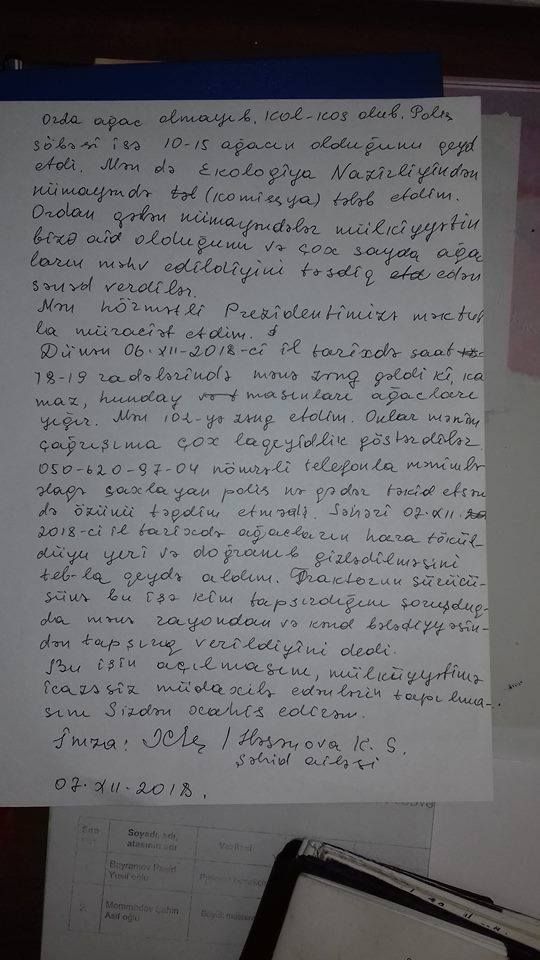 Orda ağac olmayıb. Kol-kos olub. Polis
şöbəsi isə 10-15 ağacın olduğunu qeyd
etdi. Mən də Ekologiya Nazirliyindən
nümayəndə təl (komissya) tələb etdim.
Ordan gələn nümayəndələr mülkiyyətin
bizə aid olduğunu və çox sayda ağa
ların məhv edildiyini təsdiq etd edən
sənəd verdilər.
Mən hörmətli Prezidentimizə məktub
la müraciət etdim.
Dünən 06.XII-2018-ci il tarixdə saat
18-19 radələrində mənə zəng gəldi ki, ka
maz, hunday maşınları ağacları
yığır. Mən 102-yə zəng etdim. Onlar mənim
çağrışıma çox laqeyidlik göstərdilər.
050-620-97-04 nömrəli telefonla mənimlə
əlaqə saxlayan polis nə qədər təkid etsəm
də özünü təqdim etmədi. Səhəri 07.XII.
2018-ci il tarixdə ağacların hara tökül-
düyü yeri və doğranıb gizlədilməsini
teb-lə qeydə aldım. Traktorun sürücü-
sünə bu işə kim tapşırdığını soruşduq-
da mənə rayondan və kənd bələdiyyəsin-
dən tapşırıq verildiyini dedi.
Bu işin açılmasını, mülküyyətimə
icazəsiz müdaxilə edənlərin tapılma-
sını Sizdən xahiş edirəm.
İmza: / Həsənova K. S.
şəhid ailəsi
07.XII-2018.
Soyadı, adı,
atasının adı
Vəzifəsi
Bayramov Rəşid
Yusif oğlu
2. Məmmədov Çahin
Asif oğlu